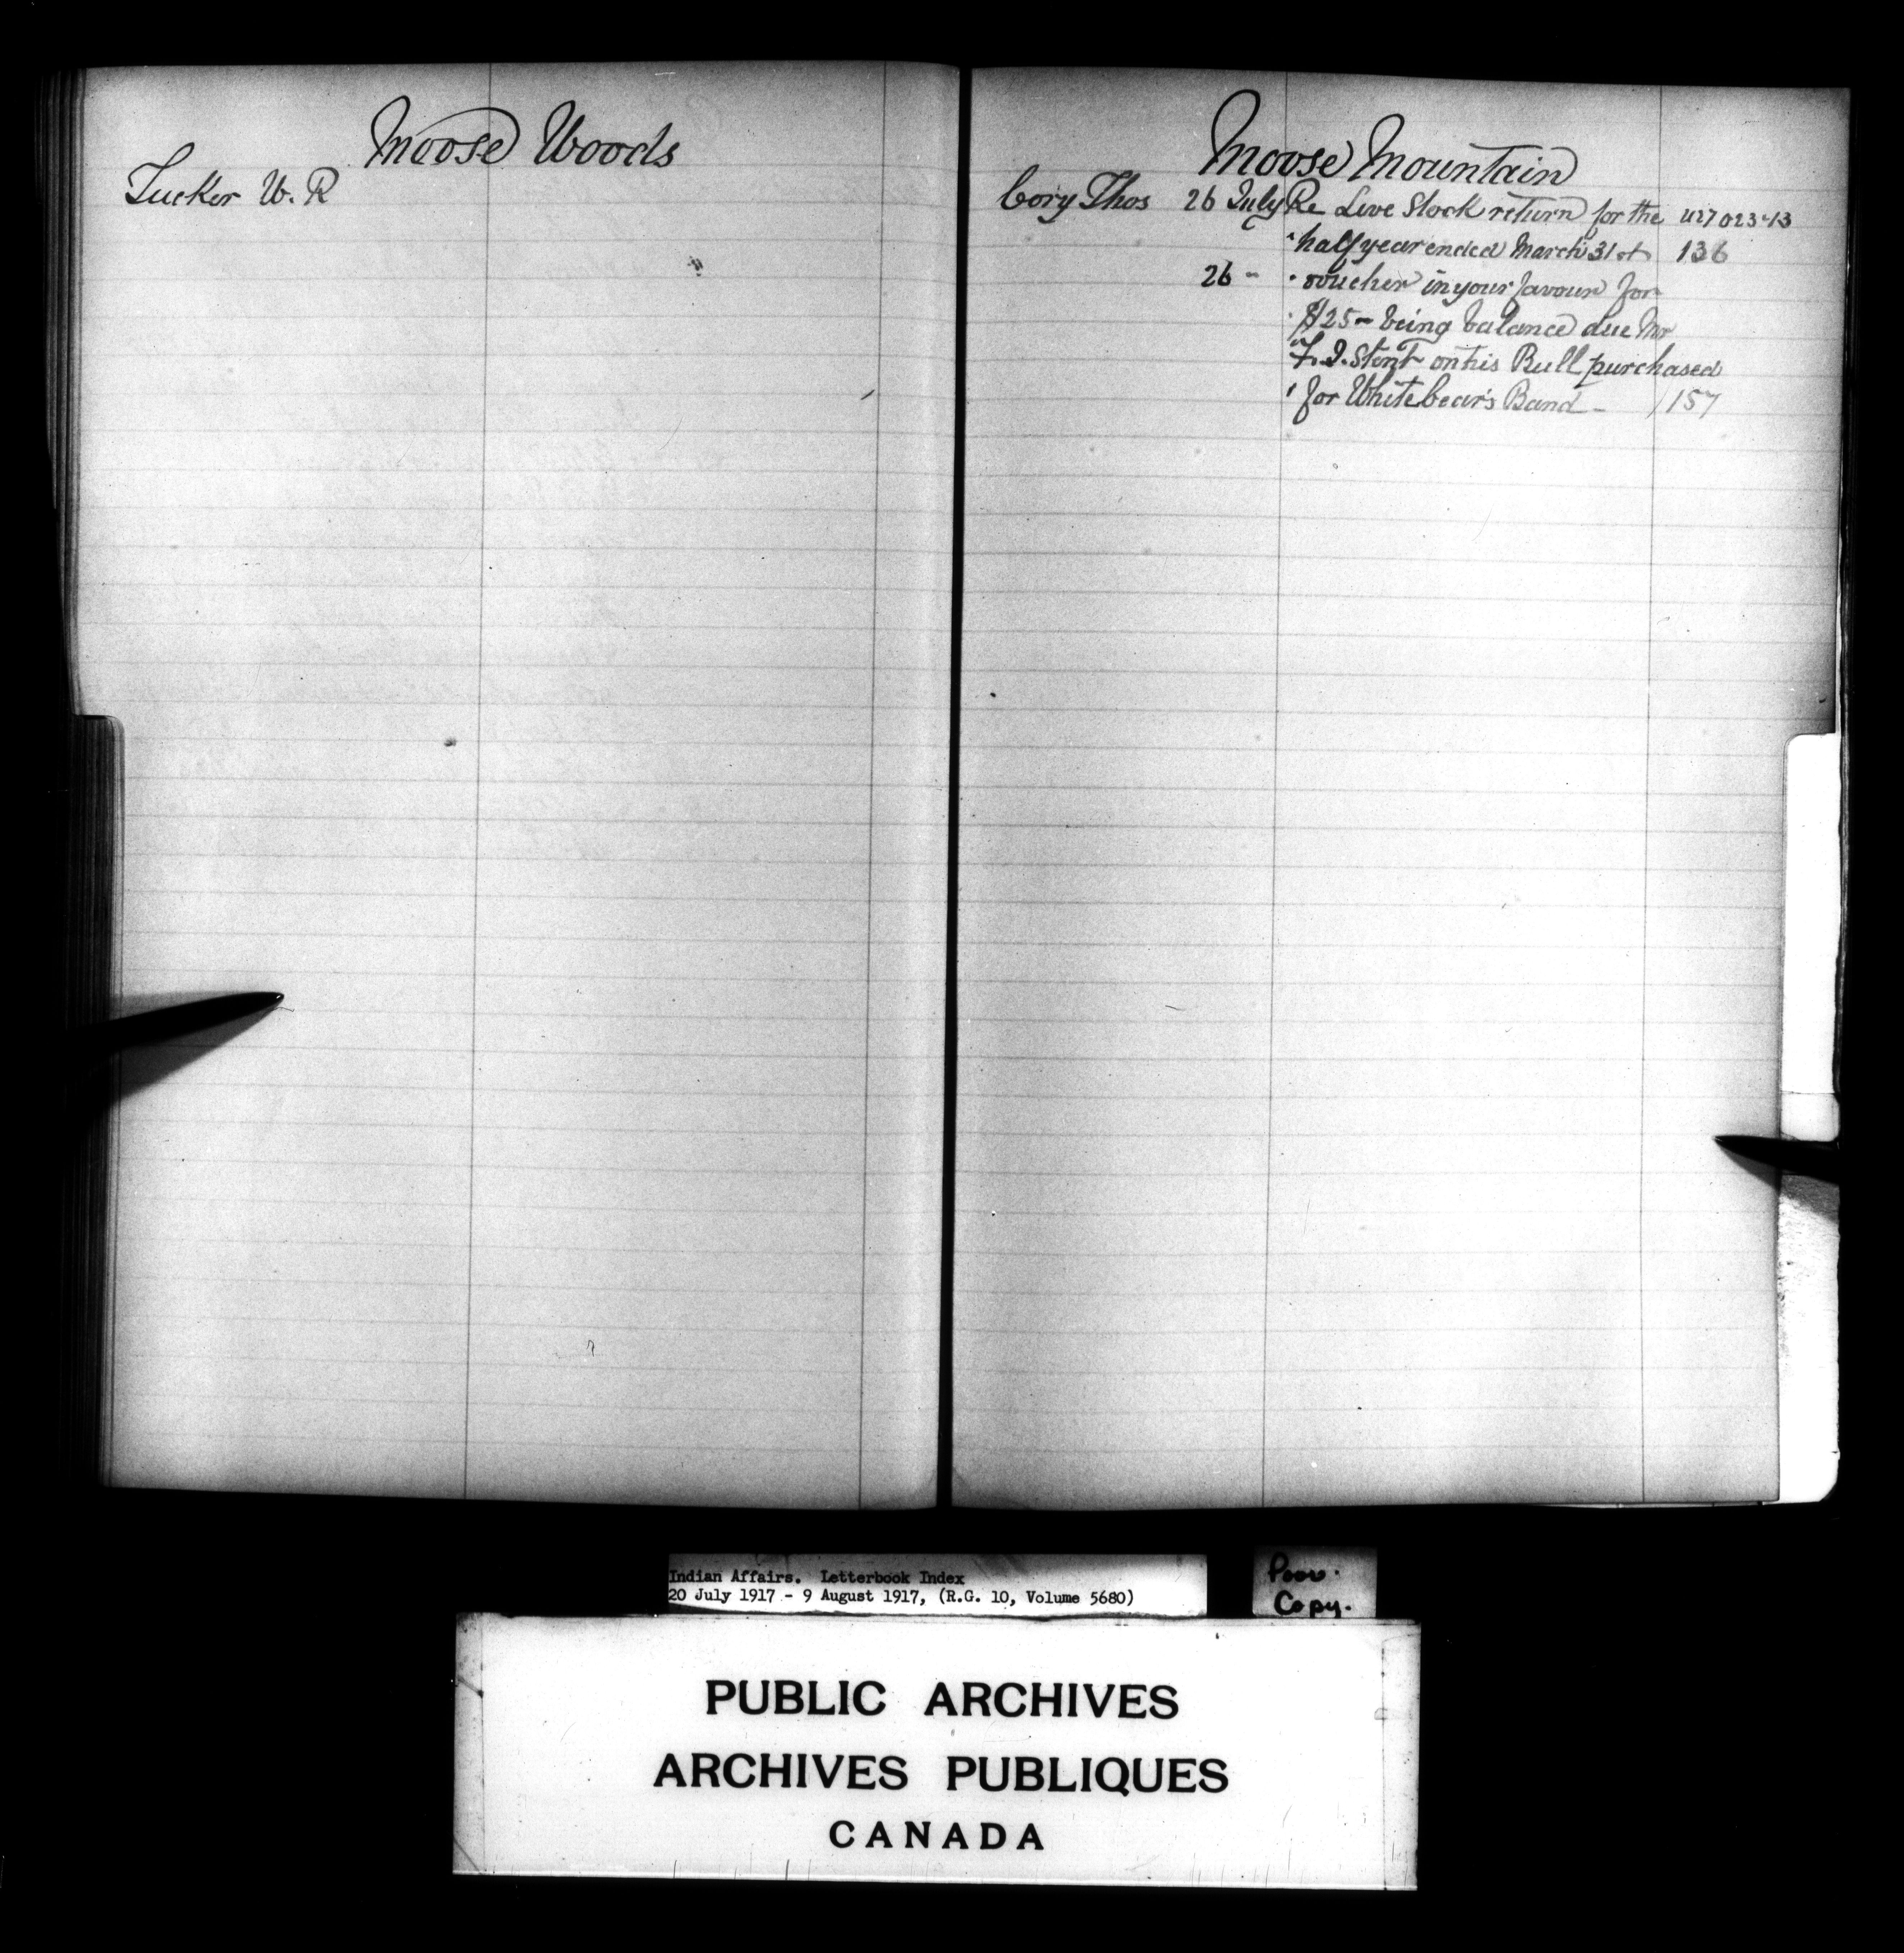 Moose Woods
Tucker W. R
Moose Mountain
Cory Thos 26 July Re Live Stock return for the 427023-13
" half year ended March 31st 136
26 " " voucher in your favour for
" $25- being balance due Mr
" Stent on his Bull purchased
" for White bear's Band - 157
Indian Affairs. Letterbook Index
20 July 1917 - 9 August 1917, (R.G. 10, Volume 5680)
Poor.
Copy.
PUBLIC ARCHIVES
ARCHIVES PUBLIQUES
CANADA